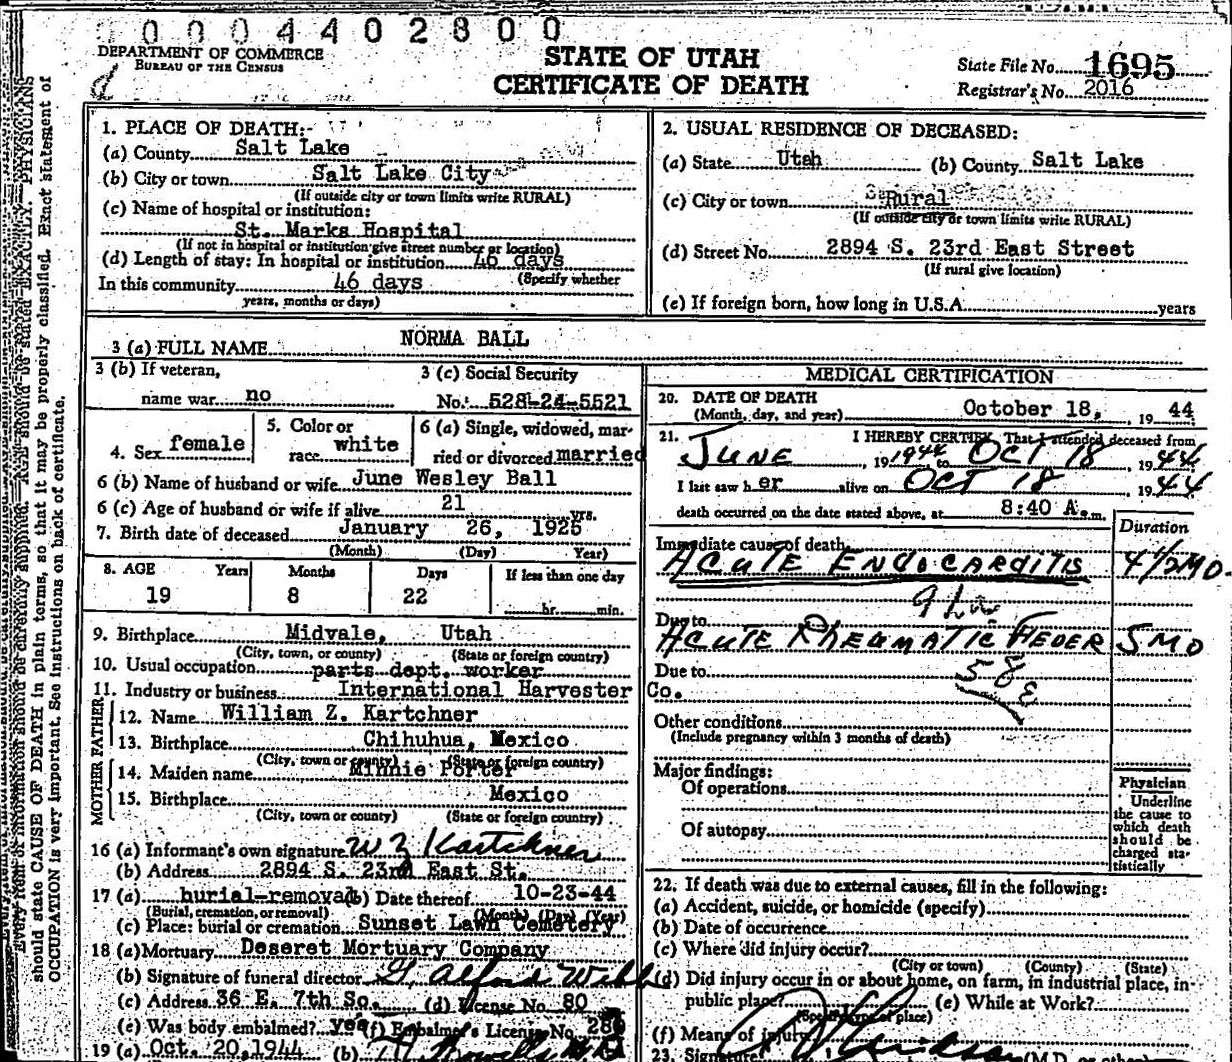 00004402800
DEPARTMENT OF COMMERCE
BUREAU OF THE CENSUS
STATE OF UTAH
CERTIFICATE OF DEATH
State File No. 1695
Registrar's No. 2016
1. PLACE OF DEATH:
(a) County Salt Lake
(b) City or town Salt Lake City
(If outside city or town limits write RURAL)
(c) Name of hospital or institution:
St. Marks Hospital
(If not in hospital or institution give street number or location)
(d) Length of stay: In hospital or institution 46 days
In this community 46 days (Specify whether
years, months or days)
2. USUAL RESIDENCE OF DECEASED:
(a) State Utah (b) County Salt Lake
(c) City or town Rural
(If outside city or town limits write RURAL)
(d) Street No. 2894 S. 23rd East Street
(If rural give location)
(e) If foreign born, how long in U.S.A. years
3 (a) FULL NAME NORMA BALL
3 (b) If veteran, 3 (c) Social Security
name war no No. 528-24-5521
4. Sex female 5. Color or race white 6 (a) Single, widowed, married or divorced married
6 (b) Name of husband or wife June Wesley Ball
6 (c) Age of husband or wife if alive 21 yrs.
7. Birth date of deceased January 26, 1925
(Month) (Day) Year)
8. AGE Years Months Days If less than one day
19 8 22 hr. min.
9. Birthplace Midvale, Utah
(City, town, or county) (State or foreign country)
10. Usual occupation parts dept. worker
11. Industry or business International Harvester Co.
FATHER
12. Name William Z. Kartchner
13. Birthplace Chihuhua, Mexico
(City, town or county) (State or foreign country)
MOTHER
14. Maiden name Minnie Porter
15. Birthplace Mexico
(City, town or county) (State or foreign country)
16 (a) Informant's own signature W Z Kartchner
(b) Address 2894 S. 23rd East St.
17 (a) burial-removal (b) Date thereof 10-23-44
(Burial, cremation, or removal) (Month) (Day) (Year)
(c) Place: burial or cremation Sunset Lawn Cemetery
18 (a) Mortuary Deseret Mortuary Company
(b) Signature of funeral director G. Alford Webb
(c) Address 36 E. 7th So. (d) License No. 80
(e) Was body embalmed? yes (f) Embalmer's License No.
19 (a) Oct. 20, 1944 (b)
MEDICAL CERTIFICATION
20. DATE OF DEATH
(Month, day, and year) October 18, , 19 44
21. I HEREBY CERTIFY That I attended deceased from
JUNE , 19 1944 to OCT 18 , 19 44
I last saw h er alive on OCT 18 , 19 44
death occurred on the date stated above, at 8:40 A. m.
Duration
Immediate cause of death
ACUTE ENDOCARDITIS 4 1/2 MO.
Due to
ACUTE RHEUMATIC FEVER 5 MO
Due to
58
Other conditions
(Include pregnancy within 3 months of death)
Major findings:
Of operations
Of autopsy
Physician
Underline
the cause to
which death
should be
charged sta-
tistically
22. If death was due to external causes, fill in the following:
(a) Accident, suicide, or homicide (specify)
(b) Date of occurrence
(c) Where did injury occur?
(City or town) (County) (State)
(d) Did injury occur in or about home, on farm, in industrial place, in
public place? (e) While at Work?
(Specify type of place)
(f) Means of injury
23. Signature (M.D. or other
should state CAUSE OF DEATH in plain terms, so that it may be properly classified. Exact statement of
OCCUPATION is very important. See instructions on back of certificate.